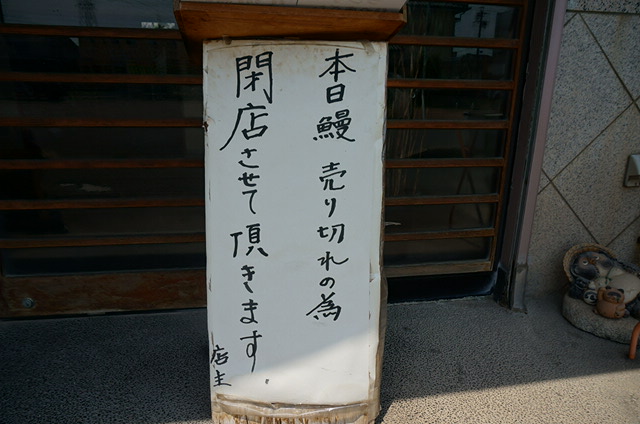 本日鰻売り切れの為
閉店させて頂きます
店主